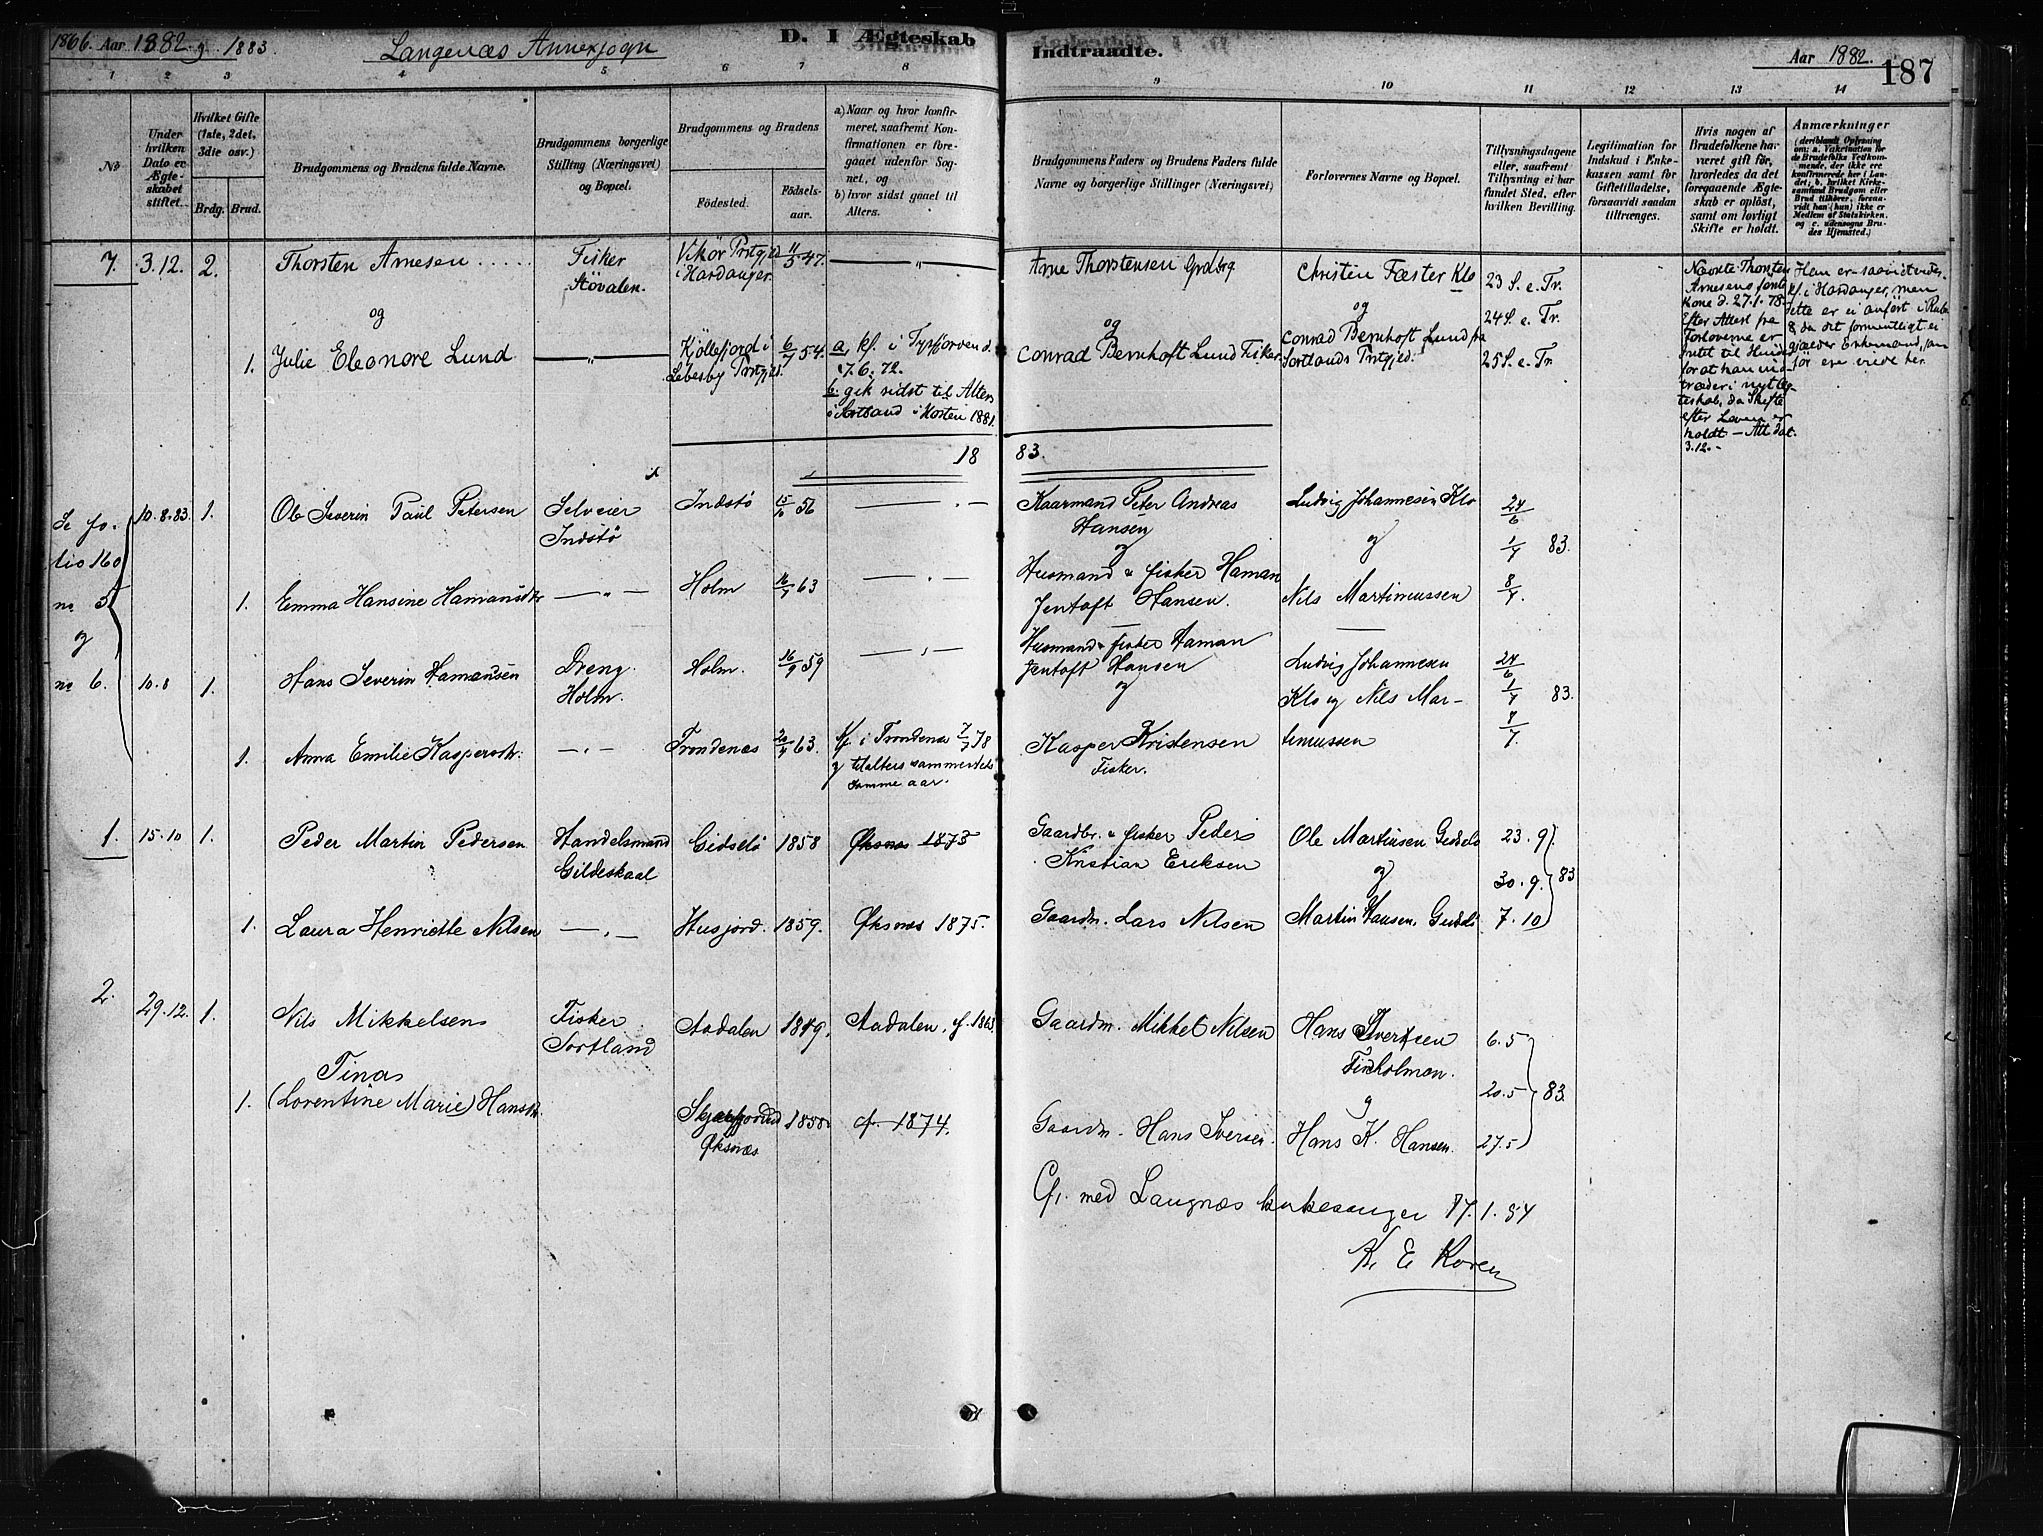 1866. Aar 1882 og 1883.
Langenæs Annexsogn
D. I Ægteskab
Indtraadte.
Aar 1882.
187
1 2 3 4 5 6 7 8 9 10 11 12 13 14
No
Under hvilken Dato er Ægteskabet stiftet.
Hvilket Gifte (1ste, 2det, 3die osv.)
Brdg. Brud.
Brudgommens og Brudens fulde Navne.
Brudgommens borgerlige Stilling (Næringsvei) og Bopæl.
Brudgommens og Brudens
Födested.
Födselsaar.
a) Naar og hvor konfirmeret, saafremt Konfirmationen er foregaaet udenfor Sognet, og
b) hvor sidst gaaet til Alters.
Brudgommens Faders og Brudens Faders fulde Navne og borgerlige Stillinger (Næringsvei)
Forlovernes Navne og Bopæl.
Tillysningsdagene eller, saafremt Tillysning ei har fundet Sted, efter hvilken Bevilling.
Legitimation for Indskud i Enkekassen samt for Giftetilladelse, forsaavidt saadan tiltrænges.
Hvis nogen af Brudefolkene har været gift før, hvorledes da det foregaaende Ægteskab er oplöst, samt om lovligt Skifte er holdt.
Anmærkninger
7. 3.12. 2. Thorsten Arnesen ..... Fisker Vikör Prstgjd 11/5 47. — " — Arne Thorstensen Grdbrg Christen Fæster Klo 23 S. e. Tr.
Stövalen. i Hardanger
og og og 24 S. e. Tr.
1. Julie Eleonore Lund — " — Kjöllefjord i 6/7 54. a, kf. i Tysfjorden d. Conrad Bernhoft Lund Fisker Conrad Bernhoft Lund fra 25 S. e. Tr.
Lebesby Prstgjd. 17.6.72. Sortlands Prstgjed.
b. gik sidst til Alters
i Sortland i Hösten 1881.
kone d. 27.1.78.
Efter Attest fra
Forloverne er
for at han ind-
træder i nyt Æg-
teskab, da Skifte
efter Loven er
holdt — Att. dat.
3.12.
18 83.
Se fo-
lio 160
no 5 10.8.83. 1. Ole Severin Paul Petersen Selveier Indstö 15/10 56 — " — Kaarmand Peter Andreas Ludvig Johannesen Klo 24/6
Indstö Hansen
og og 1/7 83.
1. Emma Hansine Hamansdtr — " — Holm 16/7 63 — " — Husmand & fisker Haman Nils Martinussen 8/7.
Jentoft Hansen.
og
no 6. 10.8 1. Hans Severin Hamansen Dreng. Holm. 16/9 59 — " — Husmand & fisker Haman Ludvig Johannesen 24/6
Holm. Jentoft Hansen Klo og Nils Mar- 1/7 83.
og
1. Anna Emilie Kaspersdtr. — " — Trondenæs 63. kf. i Trondenæs 78 Kasper Kristensen tinussen
og tilalters sammesteds Fisker.
samme aar.
1. 15.10 1. Peder Martin Pedersen Handelsmand Gidslö 1858 Øksnæs 1873 Gaardbr. & fisker Peder Ole Martinsen 23.9.
Gildeskaal Kristian Eriksen og 30.9. 83
1. Laura Henriette Nilsen — " — Husjord. 1859. Øksnæs 1875. Gaardm. Lars Nilsen Martin Hansen 7.10
2. 29.12. 1. Nils Mikkelsen Fisker Aadalen 1849. Aadalen. cf. 1863 Gaardm. Mikkel Nilsen Hans Ivertsen 6.5
Sortland
Tina
1. (Lorentine Marie) Hansdtr. 1858 cf. 1874. Gaardm. Hans Iversen. og 20.5 83.
Øksnæs Hans K. Hansen 27.5
Cf. med Langnæs kirkesanger 17.1.84
K. E. Koren